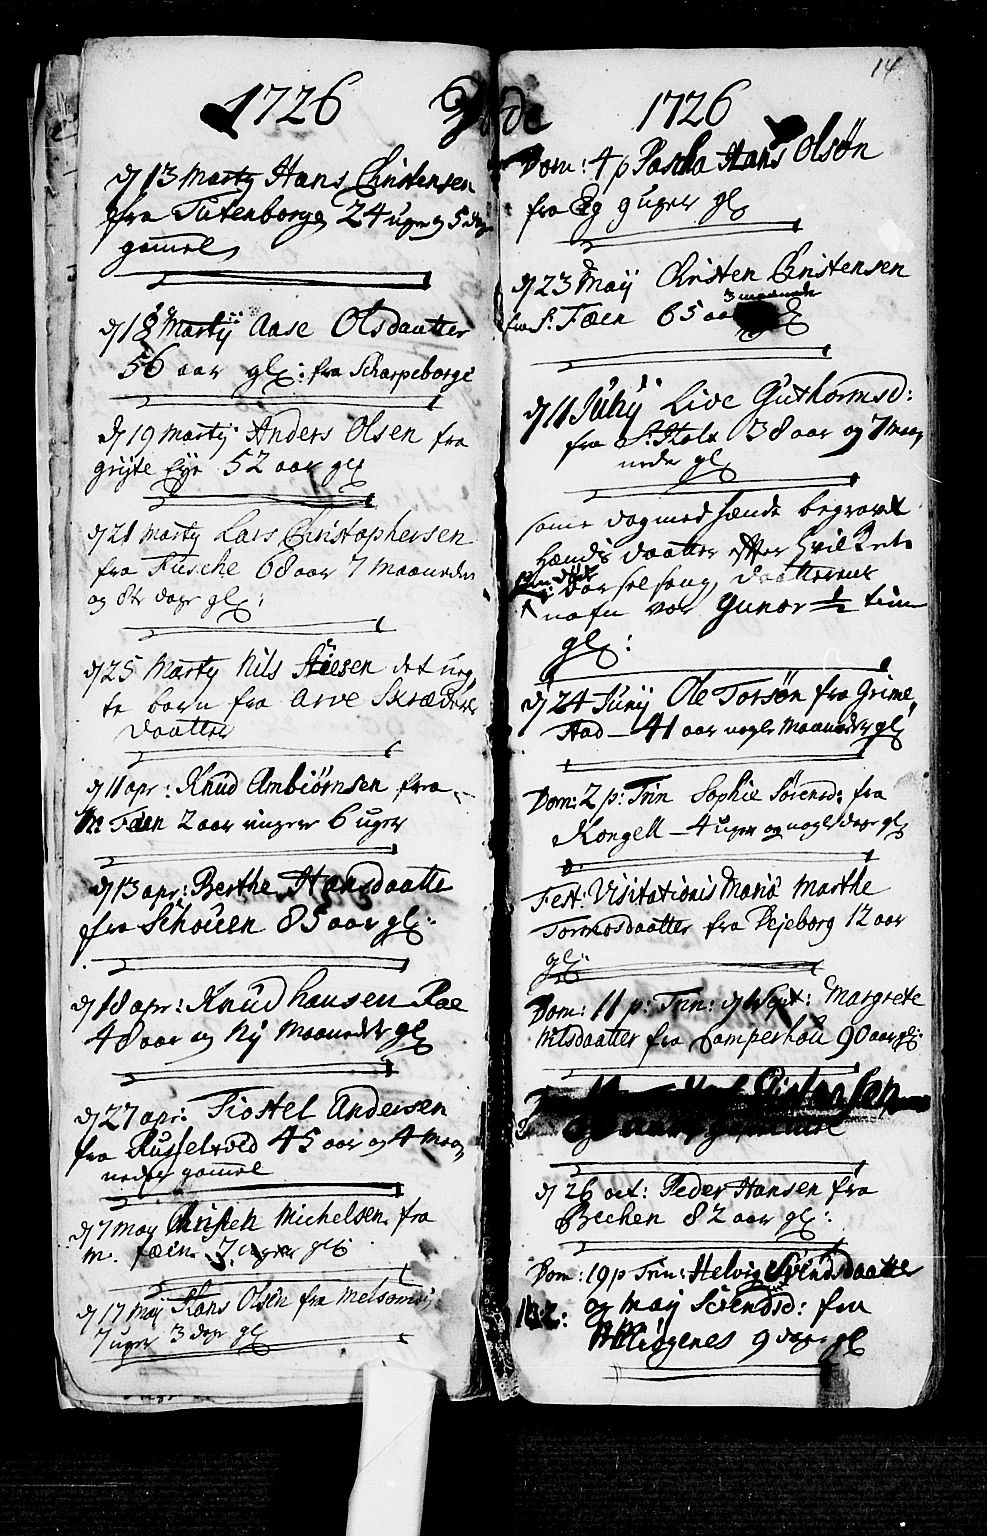 1726 Døde
d 13 Marty Hans Christensen
fra Tutenborg 24 uger og 5 dage
gamel
d 18 Martij Aase Olsdaatter
56 aar gl: fra Scharpeborge
d 19 Marty Anders Olsen fra
gryte Eye 52 aar gl
d 21 Marty Lars Christophersen
fra Fusche 68 aar 7 Maaneder
og 8te dage gl:
d 25 Marty Nils det ueg
te barn fra Arve Skræders
daatter
d 11 apr: Knud Ambiørnsen fra
N: Fæen 2 aar ringere 6 uger
d 13 apr: Berthe Hansdaatte
fra Schouen 85 aar gl:
d 18 apr: Knud hansen Roe
48 aar og Ny Maaneder gl
d 27 apr: Tiostel Andersen
fra Russeltvid 45 aar og 4 Maa
neder gamel
d 7 May Christen Michelsen fra
M. fæen 7 uger gl
d 17 Maj Hans Olsen fra Melsom
7 uger 3 dage gl
14
1726
Dom: 4 p Pascha Hans Olsøn
fra Eg 9 uger gl
d 23 Maij Christen Christensen
3 maaneder
fra S: Fæen 65 aar gl
d 11 Junij Live Guthormsd:
fra S: Holt 38 aar og 7 Maa
neder gl
same dag med hænde begravet
hændis daatter efter hvilket
barselsang, daatterens
nafn var Gunor 1/2 time
gl:
d 24 Junij Ole Torsøn fra Grime
stad 41 aar nogle Maaneder gl
Dom: 2 p: Trin Sophie Sørensd: fra
Kongell 4 uger og nogle dage gl
Fest: Visitationis Mariæ Marthe
Tormosdaatter fra Vejeborg 12 aar
gl:
Dom: 11 p: Trin: d 1 Sept: Margrete
Nilsdaatter fra Camperholt 90 aar gl:
d 26 oct: Peder Hansen fra
Bechen 82 aar gl:
Dom: 19 p Trin: Helvig Svendsdaatter
og Maij Svendsd: fra
9 dage gl